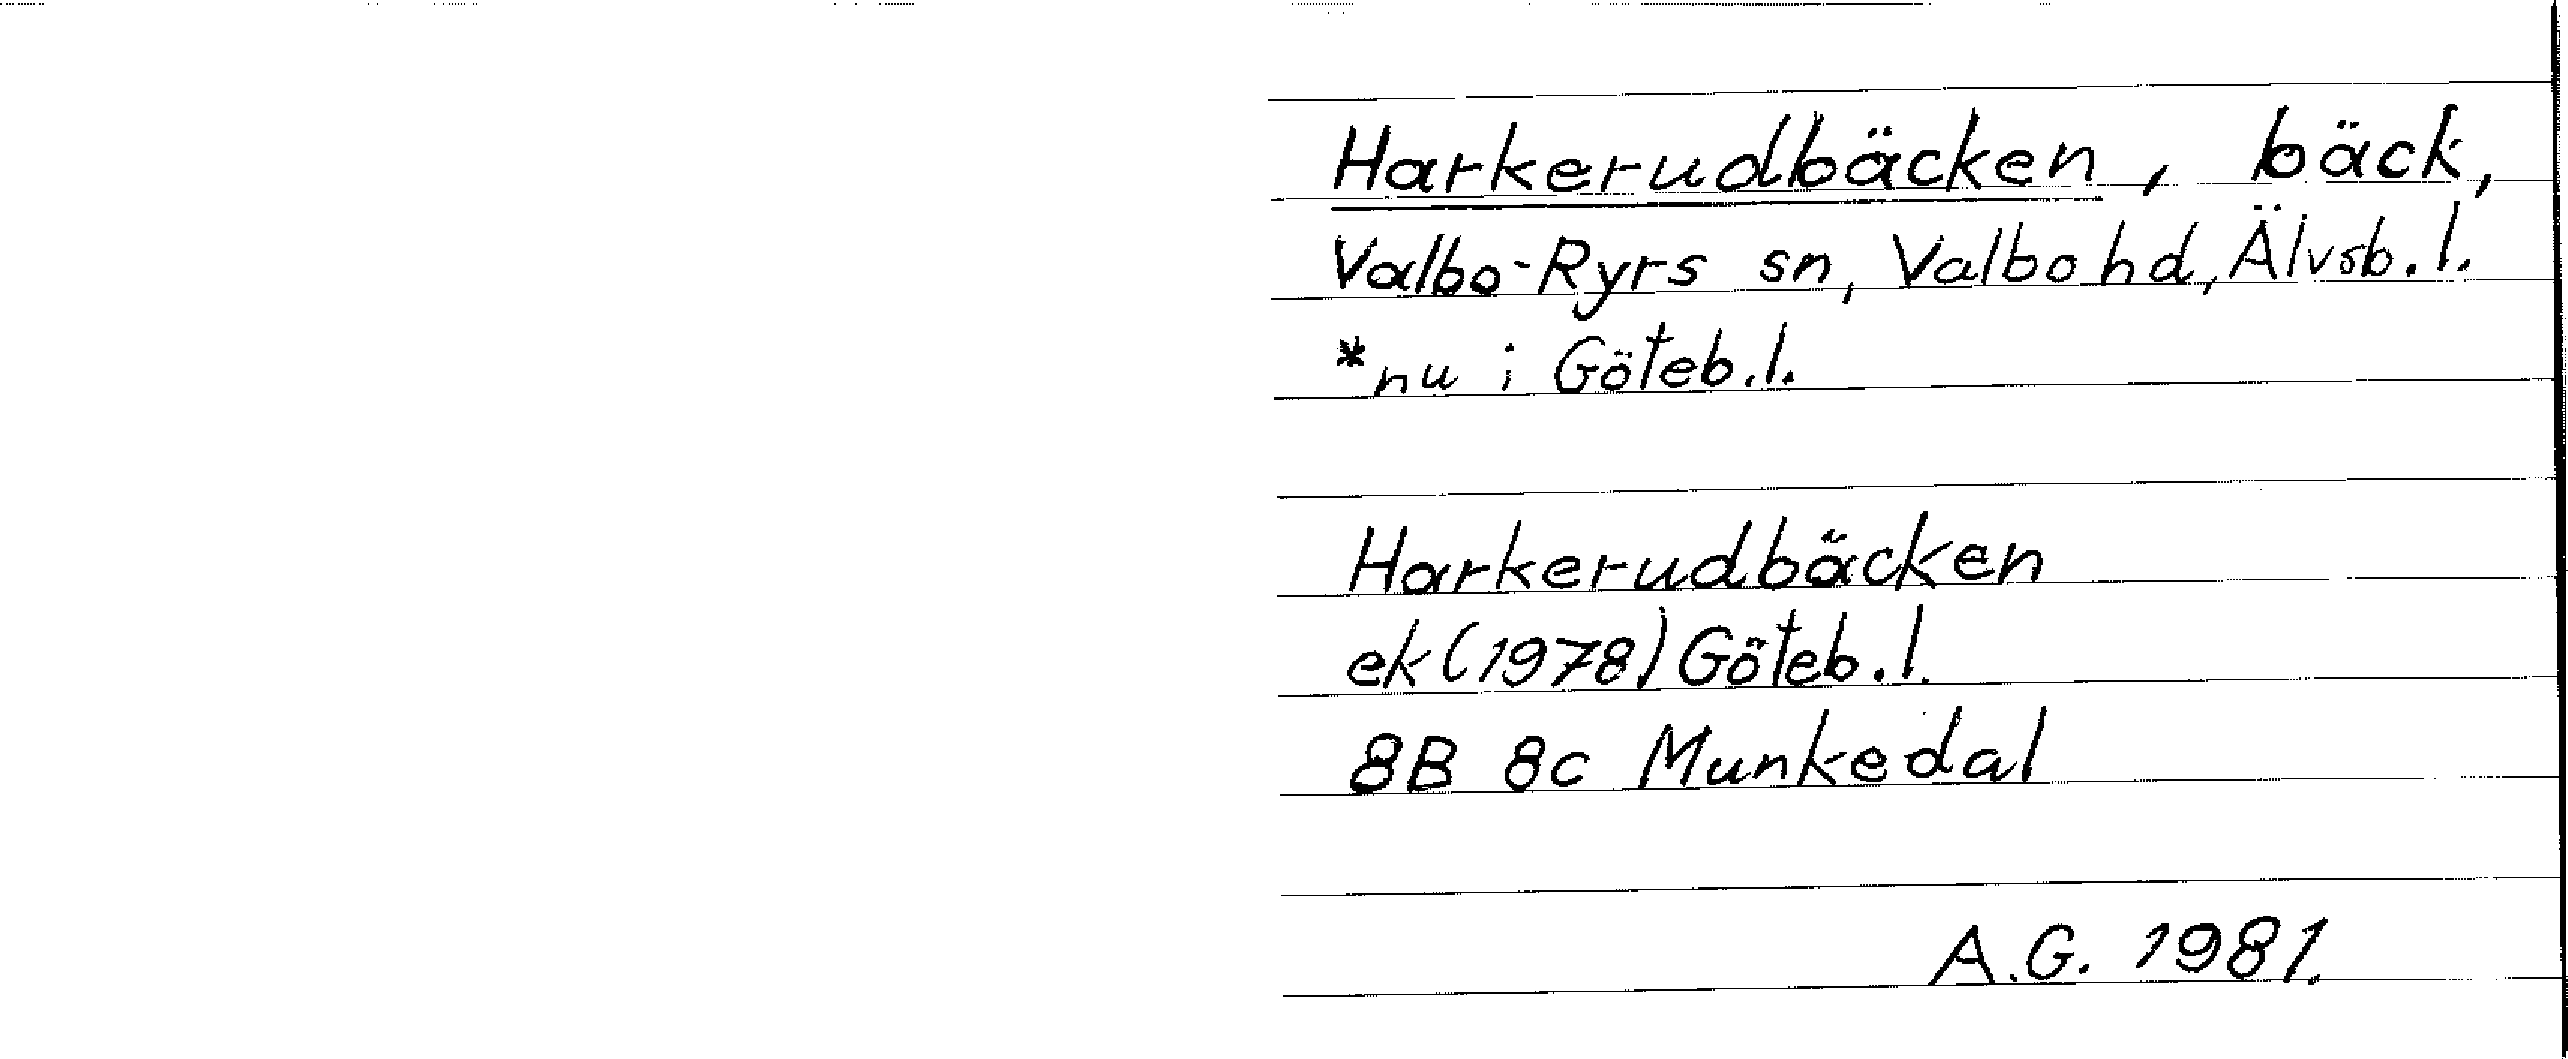 Harkerudbäcken, bäck,
Valbo-Ryrs sn, Valbo hd, Älvsb. l.
*nu i Göteb. l.
Harkerudbäcken
ek (1978) Göteb. l.
8B 8c Munkedal
A.G. 1981.